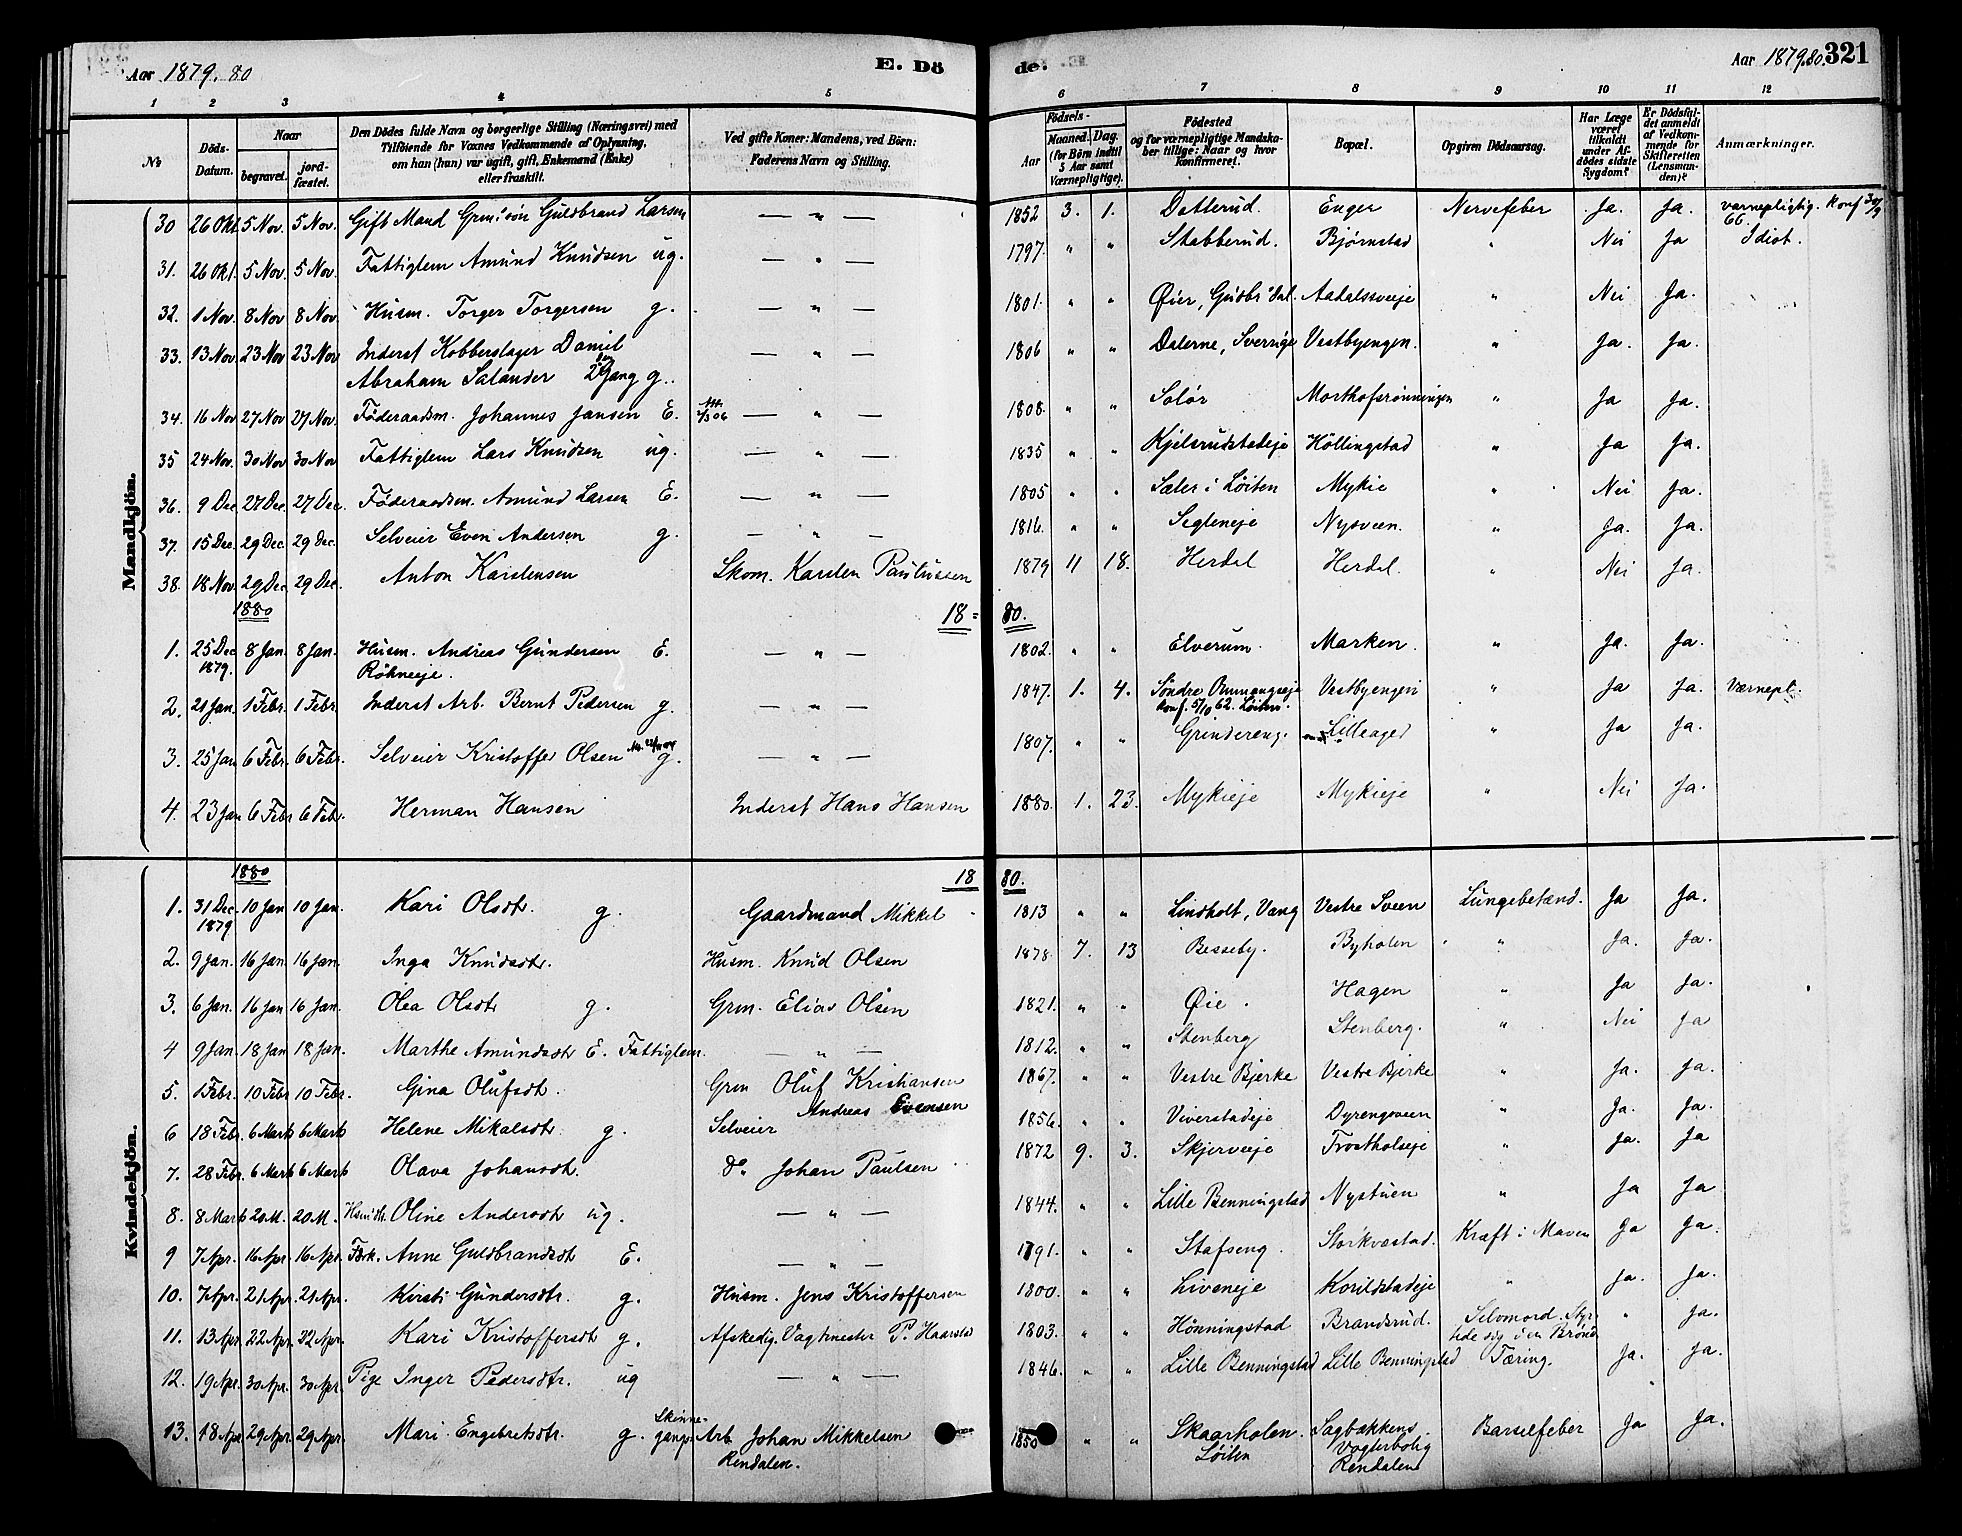 Aar 1879. 80
E. Dö
de.
Aar 1879.80. 321
1 2 3 4 5 6 7 8 9 10 11 12
№
Döds-Datum.
Naar
begravet.
jord-fæstet.
Den Dödes fulde Navn og borgerlige Stilling (Næringsvei) med
Tilföiende for Voxnes Vedkommende af Oplysning,
om han (hun) var ugift, gift, Enkemand (Enke)
eller fraskilt.
Ved gifte Koner: Mandens, ved Börn:
Faderens Navn og Stilling.
Födsels-
Aar
Maaned. Dag.
(for Börn indtil
5 Aar samt
Værnepligtige).
Födested
og for værnepligtige Mandska-
ber tillige: Naar og hvor
konfirmeret.
Bopæl.
Opgiven Dödsaarsag.
Har Læge
været
tilkaldt
under Af-
dödes sidste
Sygdom?
Er Dödsfal-
det anmeldt
af Vedkom-
mende for
Skifteretten
(Lensman-
den)?
Anmærkninger.
Mandkjön.
30 26 Okt. 5 Nov. 5 Nov. Gift Mand Grm.'sön Guldbrand Larsen — " — 1852 3. 1. Datterud. Enger Nervefeber Ja. Ja. værnepligtig. Konf 30/9 66.
31. 26 Okt. 5 Nov. 5 Nov. Fattiglem Amund Knudsen ug. — " — 1797. " " Stabberud. Bjørnstad " Nei Ja Idiot.
32. 1 Nov. 8 Nov 8 Nov. Husm. Torger Torgersen g. — " — 1801. " " Øier, Gudbr'dal. Aadalssveje " Nei Ja.
33. 13 Nov 23 Nov 23 Nov Inderst Kobberslager Daniel
Abraham Salander 2den Gang g. — " — 1806 " " Dalerne, Sverrige Vestbyengen. " Ja. Ja.
34. 16 Nov 27 Nov 27 Nov. Föderaadsm. Johannes Jansen E. — " — 1808. " " Solør Morthofsrønningen " Ja Ja.
35 24 Nov. 30 Nov 30 Nov Fattiglem Lars Knudsen ug. — " — 1835 " " Kjelsrudstadeje Höllingstad " Ja Ja.
36. 9 Dec 27 Dec. 27 Dec. Föderaadsm. Amund Larsen E. — " — 1805 " " Sæler i Löiten Mykie " Nei Ja.
37. 15 Dec. 29 Dec. 29 Dec. Selveier Even Andersen g. — " — 1816. " " Segleneje Nysveen. " Ja. Ja.
38. 18 Nov. 29 Dec. 29 Dec. Anton Karstensen Skom. Karsten Paulussen 1879 11 18. Herdal Herdal. " Nei Ja.
1880 18 = 80.
1. 25 Dec 1879. 8 Jan. 8 Jan. Husm. Andreas Gundersen E.
Röhneeje. — " — 1802. " " Elverum. Marken. " Ja. Ja.
2. 21 Jan. 1 Febr. 1 Febr. Inderst Arb. Bernt Pedersen g. — " — 1847. 1. 4. Söndre Ommangseje
konf. 5/10 62. Löiten. Vestbyengen " Ja Ja. Værnepl.
3. 25 Jan 6 Febr. 6 Febr. Selveier Kristoffer Olsen g. — " — 1807. " " Grindereng. Lilleaged " Ja Ja.
4. 23 Jan 6 Febr 6 Febr. Herman Hansen Inderst Hans Hansen 1880. 1. 23. Mykieje Mykieje " Nei Ja.
Kvindekjön.
1880 18 80.
1. 31 Dec. 1879 10 Jan 10 Jan. Kari Olsdtr. g. Gaardmand Mikkel 1813 " " Lindholt, Vang Vestre Sveen Lungebetænd. Ja Ja.
2. 9 Jan. 16 Jan. 16 Jan. Inga Knudsdtr. Husm. Knud Olsen 1878. 7. 13 Besseby. Byholen " Ja. Ja.
3. 6 Jan. 16 Jan 16 Jan. Olea Olsdtr g. Grm. Elias Olsen 1821. " " Øie. Hagen " Ja Ja.
4 9 Jan. 18 Jan 18 Jan. Marthe Amundsdtr E. Fattiglem. — " — 1812. " " Stenberg Stenberg. " Nei Ja
5. 1 Febr. 10 Febr 10 Febr. Gina Olufsdtr. Grm Oluf Kristiansen 1867. " " Vestre Bjerke Vestre Bjerke " Ja. Ja.
6 18 Febr. 6 Marts 6 Marts Helene Mikalsdtr. g. Selveier Andreas Evensen 1856. " " Viverstadeje Dyrengsveen " Ja. Ja.
7. 28 Febr. 6 Marts 6 Marts Olava Johansdtr. Do. Johan Paulsen 1872 9. 3. Skjerveeje Trostholseje " Ja. Ja
8. 8 Marts 20 M. 20 M. Husmdtr. Oline Andersdtr ug. — " — 1844. " " Lille Benningstad Nystuen " Ja Ja
9 7 Apr. 16 Apr. 16 Apr. Anne Guldbrandsdtr E. — " — 1791. " " Stafseng. Storkvæstad. Kræft i Maven Ja Ja.
10. 7 Apr. 21 Apr. 21 Apr. Kirsti Gundersdtr. g. Husm. Jens Kristoffersen 1800. " " Liveneje Korildstadeje " Ja. Ja.
11. 13 Apr 22 Apr. 22 Apr. Kari Kristoffersdtr g. Afskedig. Vagtmester P. Haarstad 1803. " " Hönningstad Brandsrud. Selvmord. Styr-
tede sig i en Brönd " Ja.
12. 19 Apr. 30 Apr. 30 Apr. Pige Inger Pedersdtr. ug — " — 1846. " " Lille Benningstad Lille Benningstad Tæring. Ja. Ja.
13. 18 Apr 29 Apr. 29 Apr. Mari Engebretsdtr. g. Skinne-
gangs- Arb. Johan Mikkelsen
Rendalen. 1850 " " Skaarholen.
Löiten Sagbakkens
Vogterbolig
Rendalen Barselfeber Ja Ja.